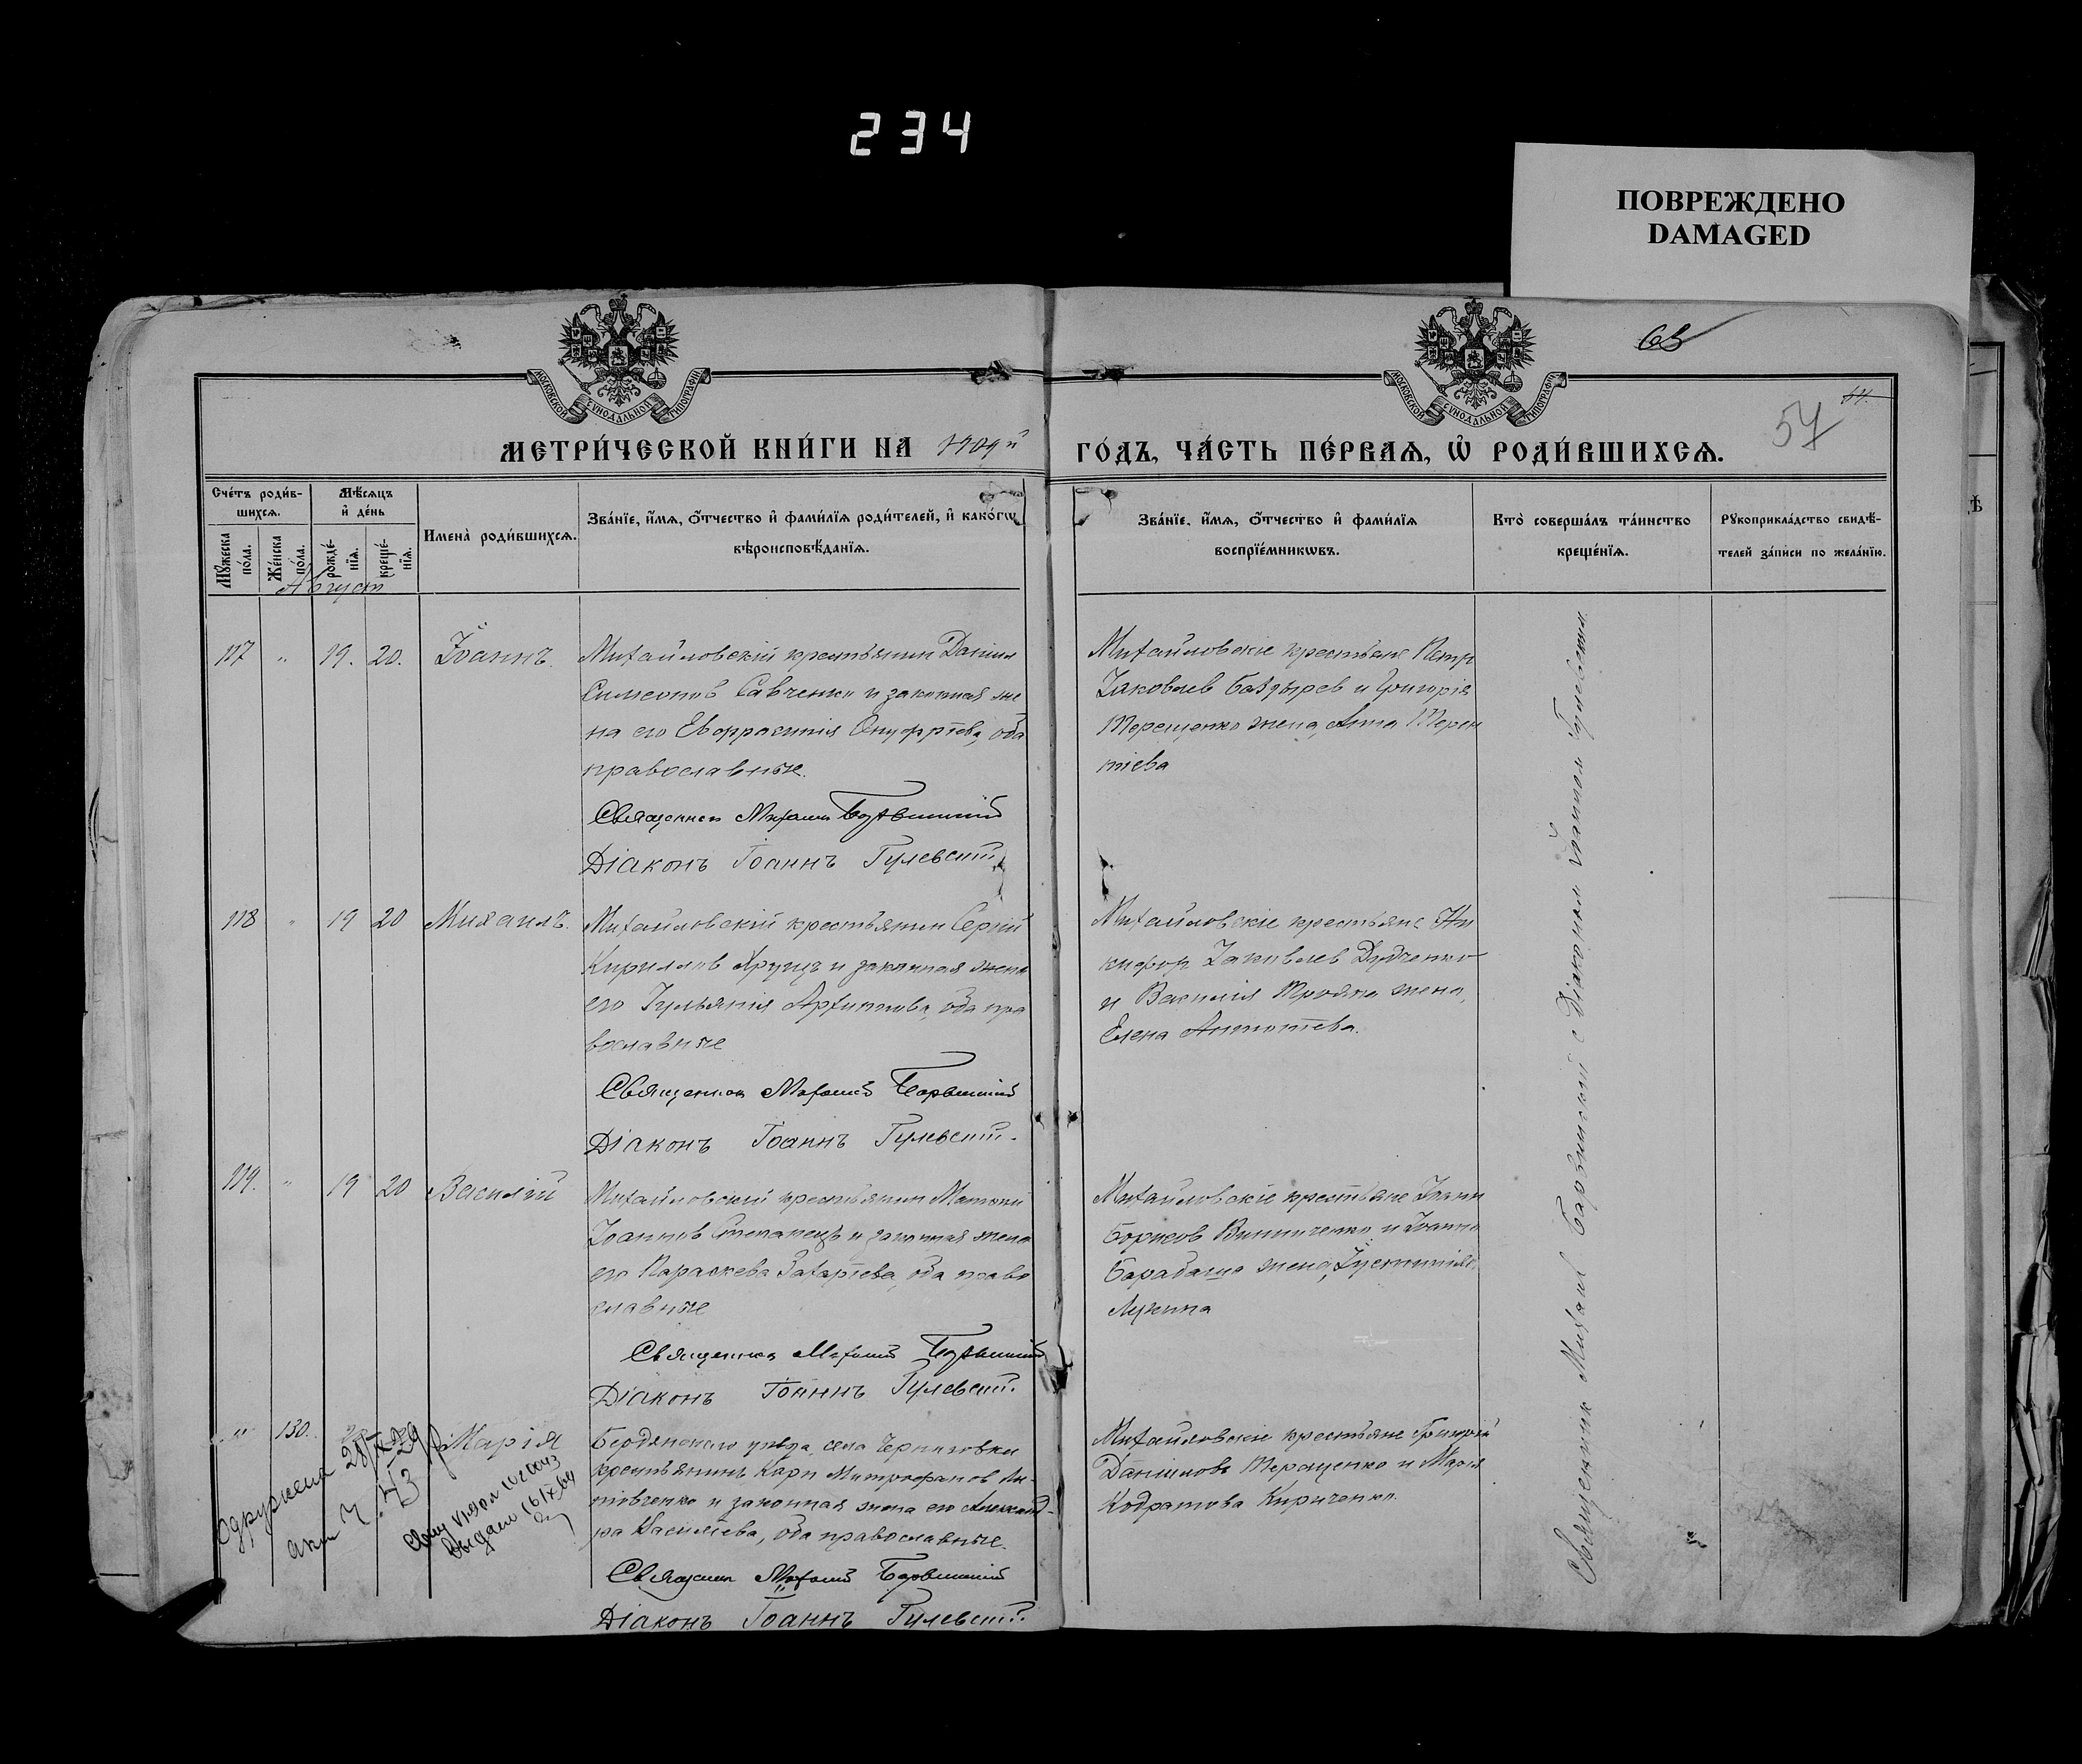 234
ПОВРЕЖДЕНО
DAMAGED
МОСКОВСКОЙ СѴНОДАЛЬНОЙ ТИПОГРАФІИ
МОСКОВСКОЙ СѴНОДАЛЬНОЙ ТИПОГРАФІИ
57
МЕТРИ́ЧЕСКОЙ КНИ́ГИ НА 1909й
ГО́ДЪ, ЧА́СТЬ ПЕ́РВАѦ, Ѡ҆ РОДИ́ВШИХСѦ.
Сче́тъ роди́в-
шихсѧ.
Мꙋ́жеска по́ла.
Же́нска по́ла.
Мѣ́сѧцъ
и҆ де́нь
рожде́-
нїѧ.
креще́-
нїѧ.
Август
Имена̀ роди́вшихсѧ.
Зва́нїе, и҆́мѧ, ѻ҆́тчество и҆ фами́лїѧ роди́телей, и҆ како́гѡ
вѣроисповѣ́данїѧ.
Зва́нїе, и҆́мѧ, ѻ҆́тчество и҆ фами́лїѧ
воспрїе́мникѡвъ.
Кто̀ соверша́лъ та́инство
креще́нїѧ.
Рꙋкоприкла́дство свидѣ́-
телей за́писи по жела́нїю.
117 " 19. 20. Іоаннъ.
Михайловскій крестьянин Даніил
Симеонов Савченко и законная же
на его Евфросинія Онуфріева, оба
православные.
Священник Михаил
Діаконъ Іоаннъ Гулевскій
Михайловскіе крестьяне Петр
Іаковлев Баздырев и Григорія
Терещенко жена, Анна Терен
тіева
118 " 19 20 Михаилъ.
Михайловскій крестьянин Сергій
Кириллов Хрущъ и законная жена
его Іульянія Архиппова, оба пра
вославные
Священник Михаил
Діаконъ Іоаннъ Гулевскій.
Михайловскіе крестьяне Ни
кифор Іаковлев Дудченко
и Василія Трояна жена,
Елена
119. " 19 20 Василій
Михайловский крестьянин
Іоаннов Степанецъ и законная жена
его Параскева Захаріева, оба право
славные
Священник Михаил
Діаконъ Іоаннъ Гулевскій.
Михайловскіе крестьяне Іоанн
Борисов Винниченко и Іоанна
Барабаша жена, Іустинія
Лукина
" 130. Марія
Бердянского уезда, села Черниговки
крестьянинъ Карп Митрофанов Ли-
товченко и законная жена его Александ-
ра Васильева, оба православные.
Священник Михаил
Діаконъ Іоаннъ Гулевскій.
Михайловскіе крестьяне Григорій
Даниловъ Терещенко и Марія
Кодратова Кириченко.
Одружена 28/IX-29 р
акт ч. 43
Священник Михаил с Діаконом Іоанном Гулевским.